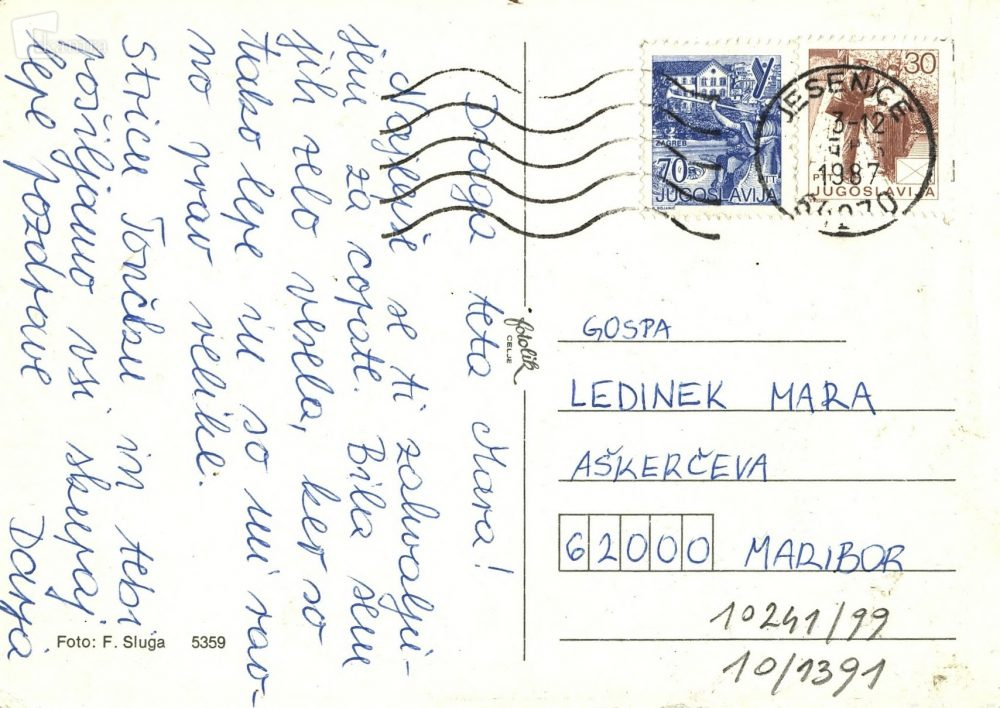 Draga teta Mara!
Najlepše se ti zahvalju-
jem za copate. Bila sem
jih zelo vesela, ker so
tako lepe in so mi rav-
no prav velike.
Stricu Tončku in tebi
pošiljamo vsi skupaj
lepe pozdrave
Darja
Foto: F. Sluga 5359
fotolik
CELJE
ZAGREB
70
PTT
JUGOSLAVIJA
30
PTT
JUGOSLAVIJA
JESENICE
3-12
1987
64270
GOSPA
LEDINEK MARA
AŠKERČEVA
62000 MARIBOR
10241/99
10/1391